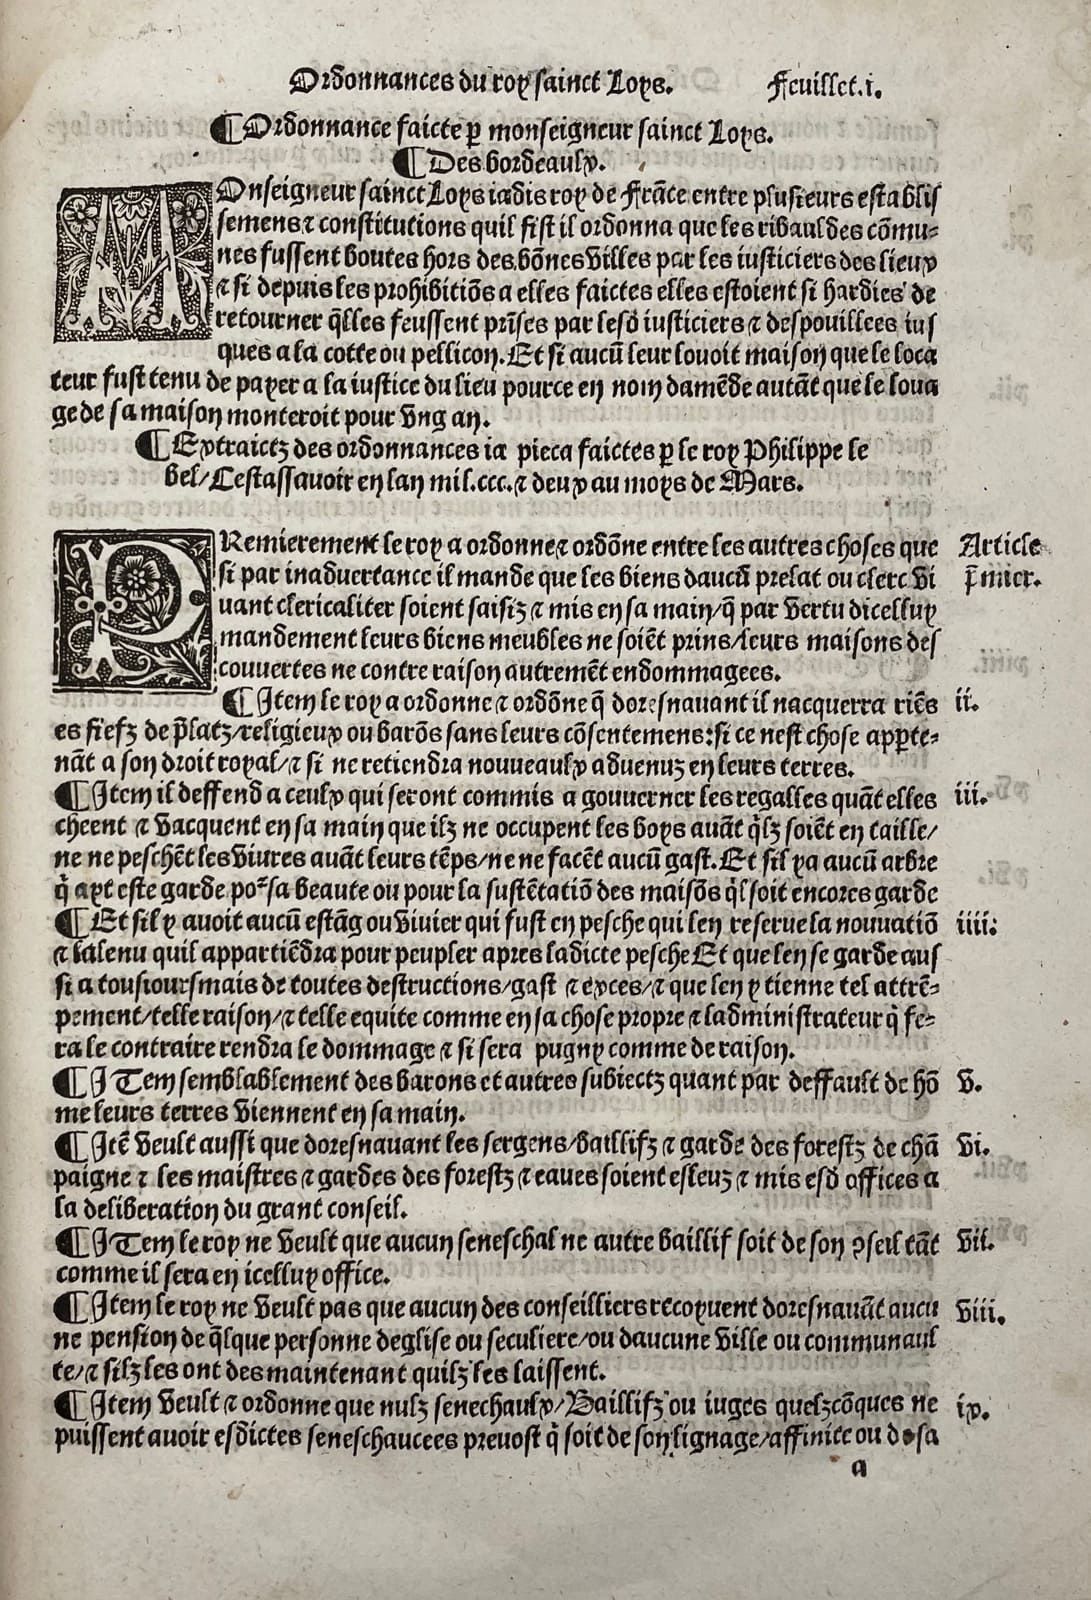 Ordonnances du roy sainct Loys. Feuillet.i.
¶Ordonnance faicte p̱ monseigneur sainct Loys.
¶Des bordeaulx.
MOnseigneur sainct Loys iadis roy de Frãce entre plusieurs establis
semens ⁊ constitutions quil fist il ordonna que les ribauldes cõmu⸗
nes fussent boutes hors des bõnes villes par les iusticiers des lieux
⁊ si depuis les prohibitiõs a elles faictes elles estoient si hardies de
retourner q̃lles feussent prĩses par lesd̓ iusticiers ⁊ despouillees ius
ques a la cotte ou pellicon. Et si aucũ leur louoit maison que le loca
teur fust tenu de payer a la iustice du lieu pource en nom damẽde autãt que le loua
ge de sa maison monteroit pour vng an.
¶Extraictz des ordonnances ia pieca faictes p̱ le roy Philippe le
bel/Cestassauoir en lan mil.ccc.⁊ deux au moys de Mars.
PRemierement le roy a ordonne ⁊ ordõne entre les autres choses que Article
si par inaduertance il mande que les biens daucũ prelat ou clerc vi p̃mier.
uant clericaliter soient saisiz ⁊ mis en sa main/q̃ par vertu dicelluy
mandement leurs biens meubles ne soiẽt prins/leurs maisons des
couuertes ne contre raison autremẽt endommagees.
¶Item le roy a ordonne ⁊ ordõne q̃ doresnauant il nacquerra riẽs ii.
es fiefz de p̃latz/religieux ou barõs sans leurs cõsentemens:si ce nest chose app̱te⸗
nãt a son droit royal/⁊ si ne retiendra nouueaulx aduenuz en leurs terres.
¶Item il deffend a ceulx qui seront commis a gouuerner les regalles quãt elles iii.
cheent ⁊ vacquent en sa main que ilz ne occupent les boys auãt q̃lz soiẽt en taille/
ne ne peschẽt les viures auãt leurs tẽps/ne ne facẽt aucũ gast. Et sil ya aucũ arbre
q̃ ayt este garde poᷣ sa beaute ou pour la sustẽtatiõ des maisõs q̃l soit encores garde
¶Et sil y auoit aucũ estãg ou viuier qui fust en pesche qui len reserue la nouuatiõ iiii.
⁊ lalenu quil appartiẽdra pour peupler apres ladicte pesche Et que len se garde aus
si a tousiours mais de toutes destructions/gast ⁊ exces/⁊ que len y tienne tel attrẽ⸗
pement/telle raison/⁊ telle equite comme en sa chose propre ⁊ ladministrateur q̃ fe⸗
ra le contraire rendra le dommage ⁊ si sera pugny comme de raison.
¶ITem semblablement des barons et autres subiectz quant par deffault de hõ v.
me leurs terres viennent en sa main.
¶Itẽ veult aussi que doresnauant les sergens/baillifz ⁊ garde des forestz de chã vi.
paigne ⁊ les maistres ⁊ gardes des forestz ⁊ eaues soient esleuz ⁊ mis esd̓ offices a
la deliberation du grant conseil.
¶ITem le roy ne veult que aucun seneschal ne autre baillif soit de son ꝯseil tãt vii.
comme il sera en icelluy office.
¶Item le roy ne veult pas que aucun des conseilliers recoyuent doresnauãt aucu viii.
ne pension de q̃lque personne deglise ou seculiere/ou daucune ville ou communaul
te/⁊ silz les ont des maintenant quilz les laissent.
¶Item veult ⁊ ordonne que nulz senechaulx/Baillifz ou iuges quelzcõques ne ix.
puissent auoir esdictes seneschaucees preuost q̃ soit de son lignage/affinite ou de sa
a